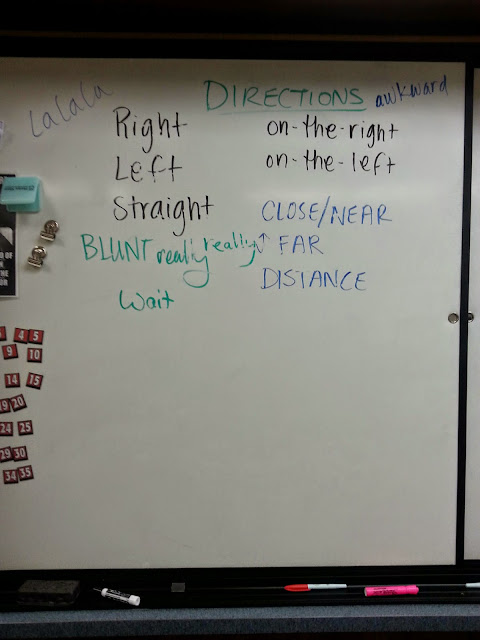 Lalala DIRECTIONS awkward
Right on-the-right
Left on-the-left
Straight CLOSE/NEAR
BLUNT really really ↑ FAR
DISTANCE
Wait
4 5
9 10
14 15
19 20
24 25
29 30
34 35